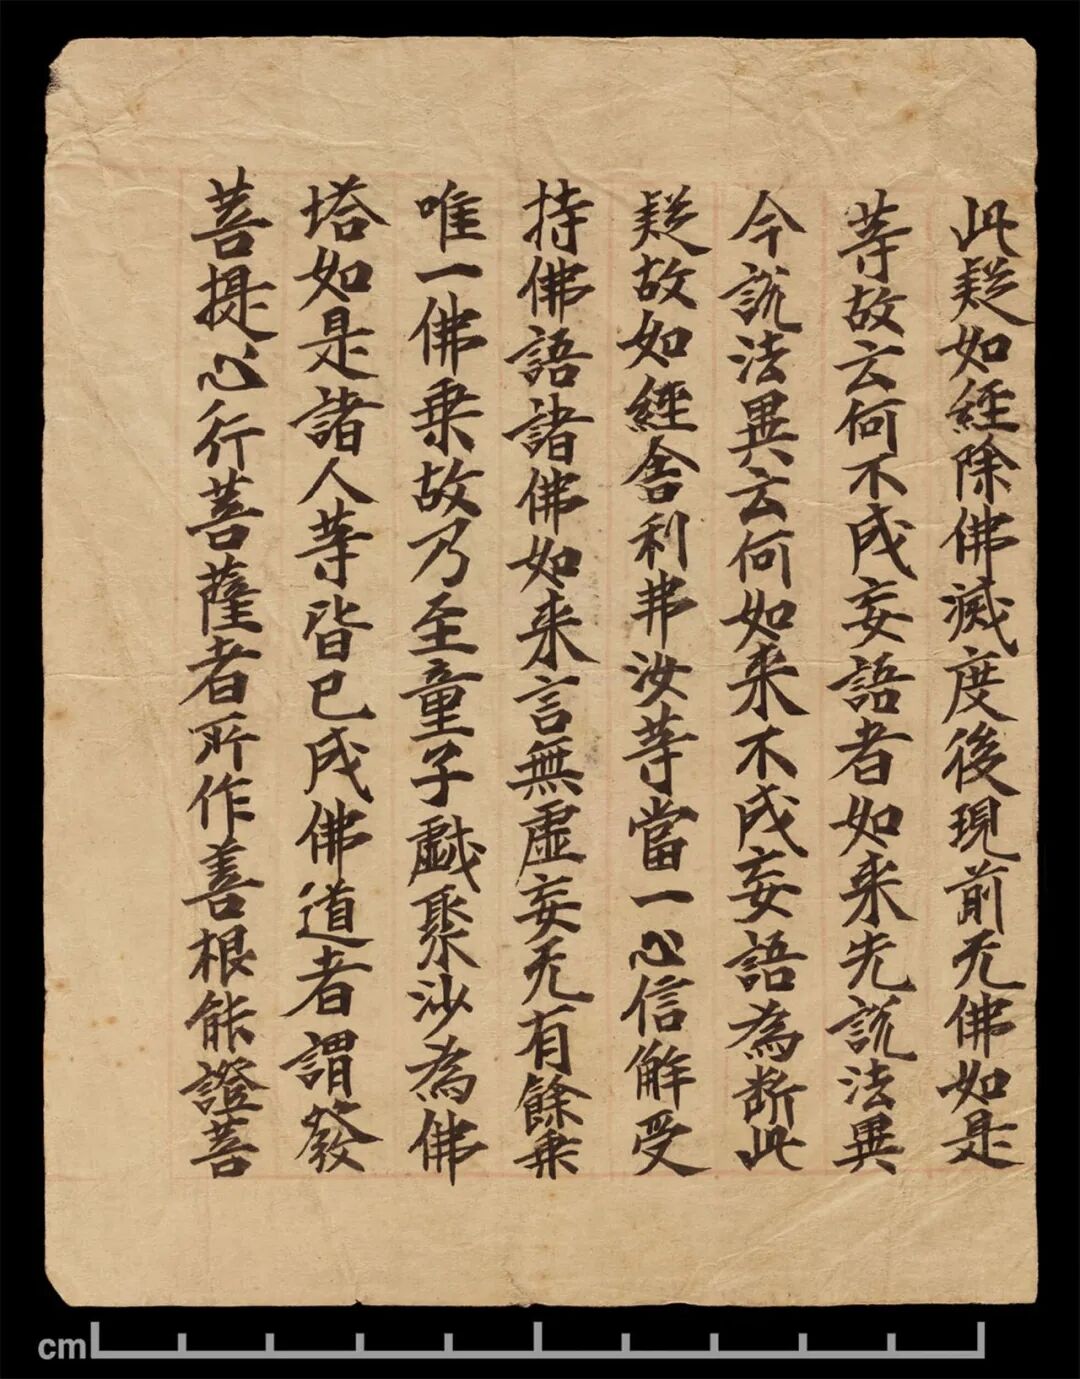 此疑如經除佛滅度後現前无佛如是
等故云何不成妄語者如来先說法異
今說法異云何如来不成妄語為断此
疑故如經舍利弗汝等當一心信解受
持佛語諸佛如来言無虚妄无有餘乗
唯一佛乗故乃至童子戱聚沙為佛
塔如是諸人等皆已成佛道者謂發
菩提心行菩薩者所作善根能證菩
cm